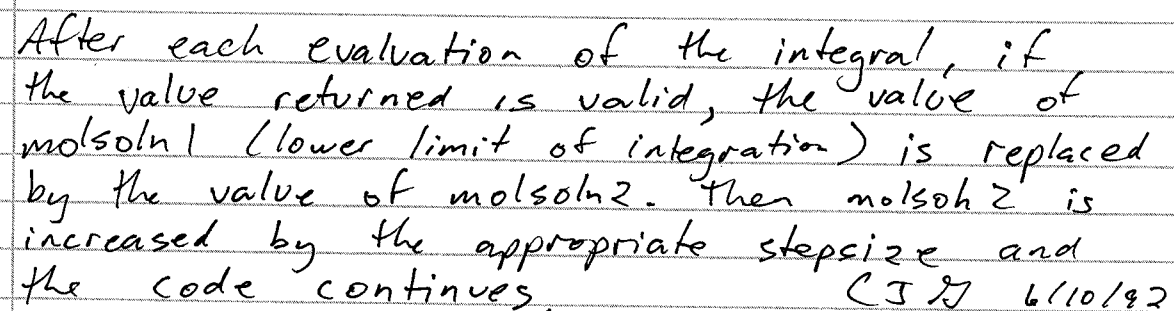 After each evaluation of the integral, if
the value returned is valid, the value of
molsoln1 (lower limit of integration) is replaced
by the value of molsoln2. Then molsoln2 is
increased by the appropriate stepsize and
the code continues. 6/10/92